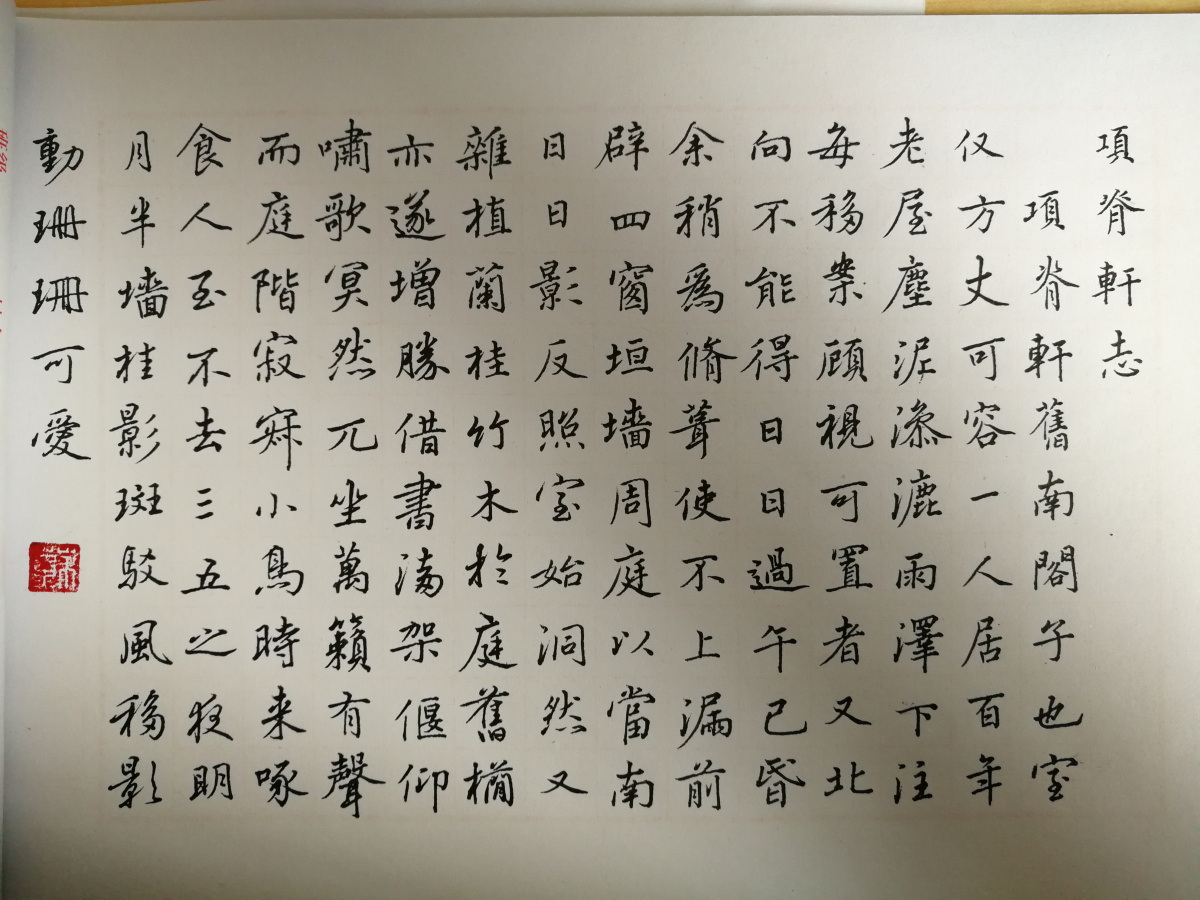 項脊軒志
項脊軒舊南閣子也室
仅方丈可容一人居百年
老屋塵泥滲漉雨澤下注
每移案顧視可置者又北
向不能得日日過午已昏
余稍爲脩葺使不上漏前
辟四窗垣墻周庭以當南
日日影反照室始洞然又
雜植蘭桂竹木於庭舊楯
亦遂增勝借書滿架偃仰
嘯歌冥然兀坐萬籟有聲
而庭階寂寂小鳥時来啄
食人至不去三五之夜明
月半墻桂影斑駁風移影
動珊珊可愛